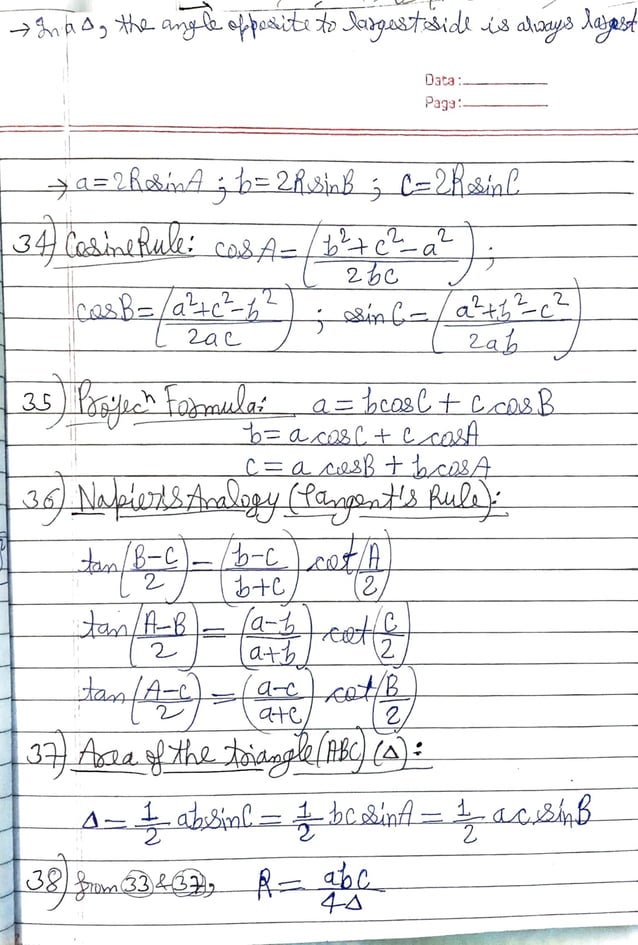 → In a Δ, the angle opposite to largest side is always largest
Data:
Page:
→ a = 2R sinA ; b = 2R sinB ; c = 2R sinC
34) Cosine Rule: cos A = (b²+c²−a² / 2bc) ;
cosB = (a²+c²−b² / 2ac) ; sin C = (a²+b²−c² / 2ab)
35) Projecⁿ Formula: a = bcosC + c cosB
b = a cosC + c cosA
c = a cosB + b cosA
36) Napier's Analogy (Tangent's Rule):
tan(B−C / 2) = (b−c / b+c) cot(A / 2)
tan(A−B / 2) = (a−b / a+b) cot(C / 2)
tan(A−C / 2) = (a−c / a+c) cot(B / 2)
37) Area of the triangle (ABC) (Δ) :
Δ = 1/2 absinC = 1/2 bc sinA = 1/2 ac sinB
38) from 33 & 37, R = abc / 4Δ